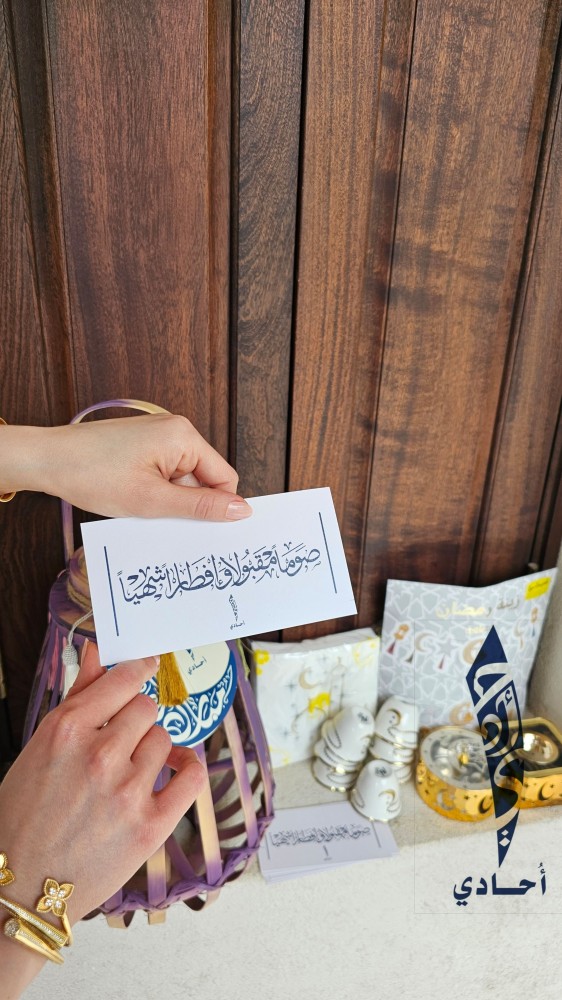 صَوماً مَقبُولاً وَإفطاراً شَهيّاً
أحادي
أحادي
زينة رمضان
صَوماً مَقبُولاً وَإفطاراً شَهيّاً
أُحــادي